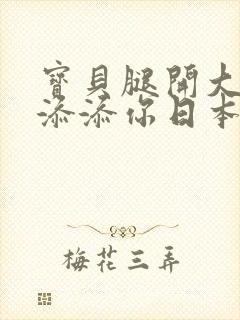 寶貝腿開大
添添你日本
梅花三弄